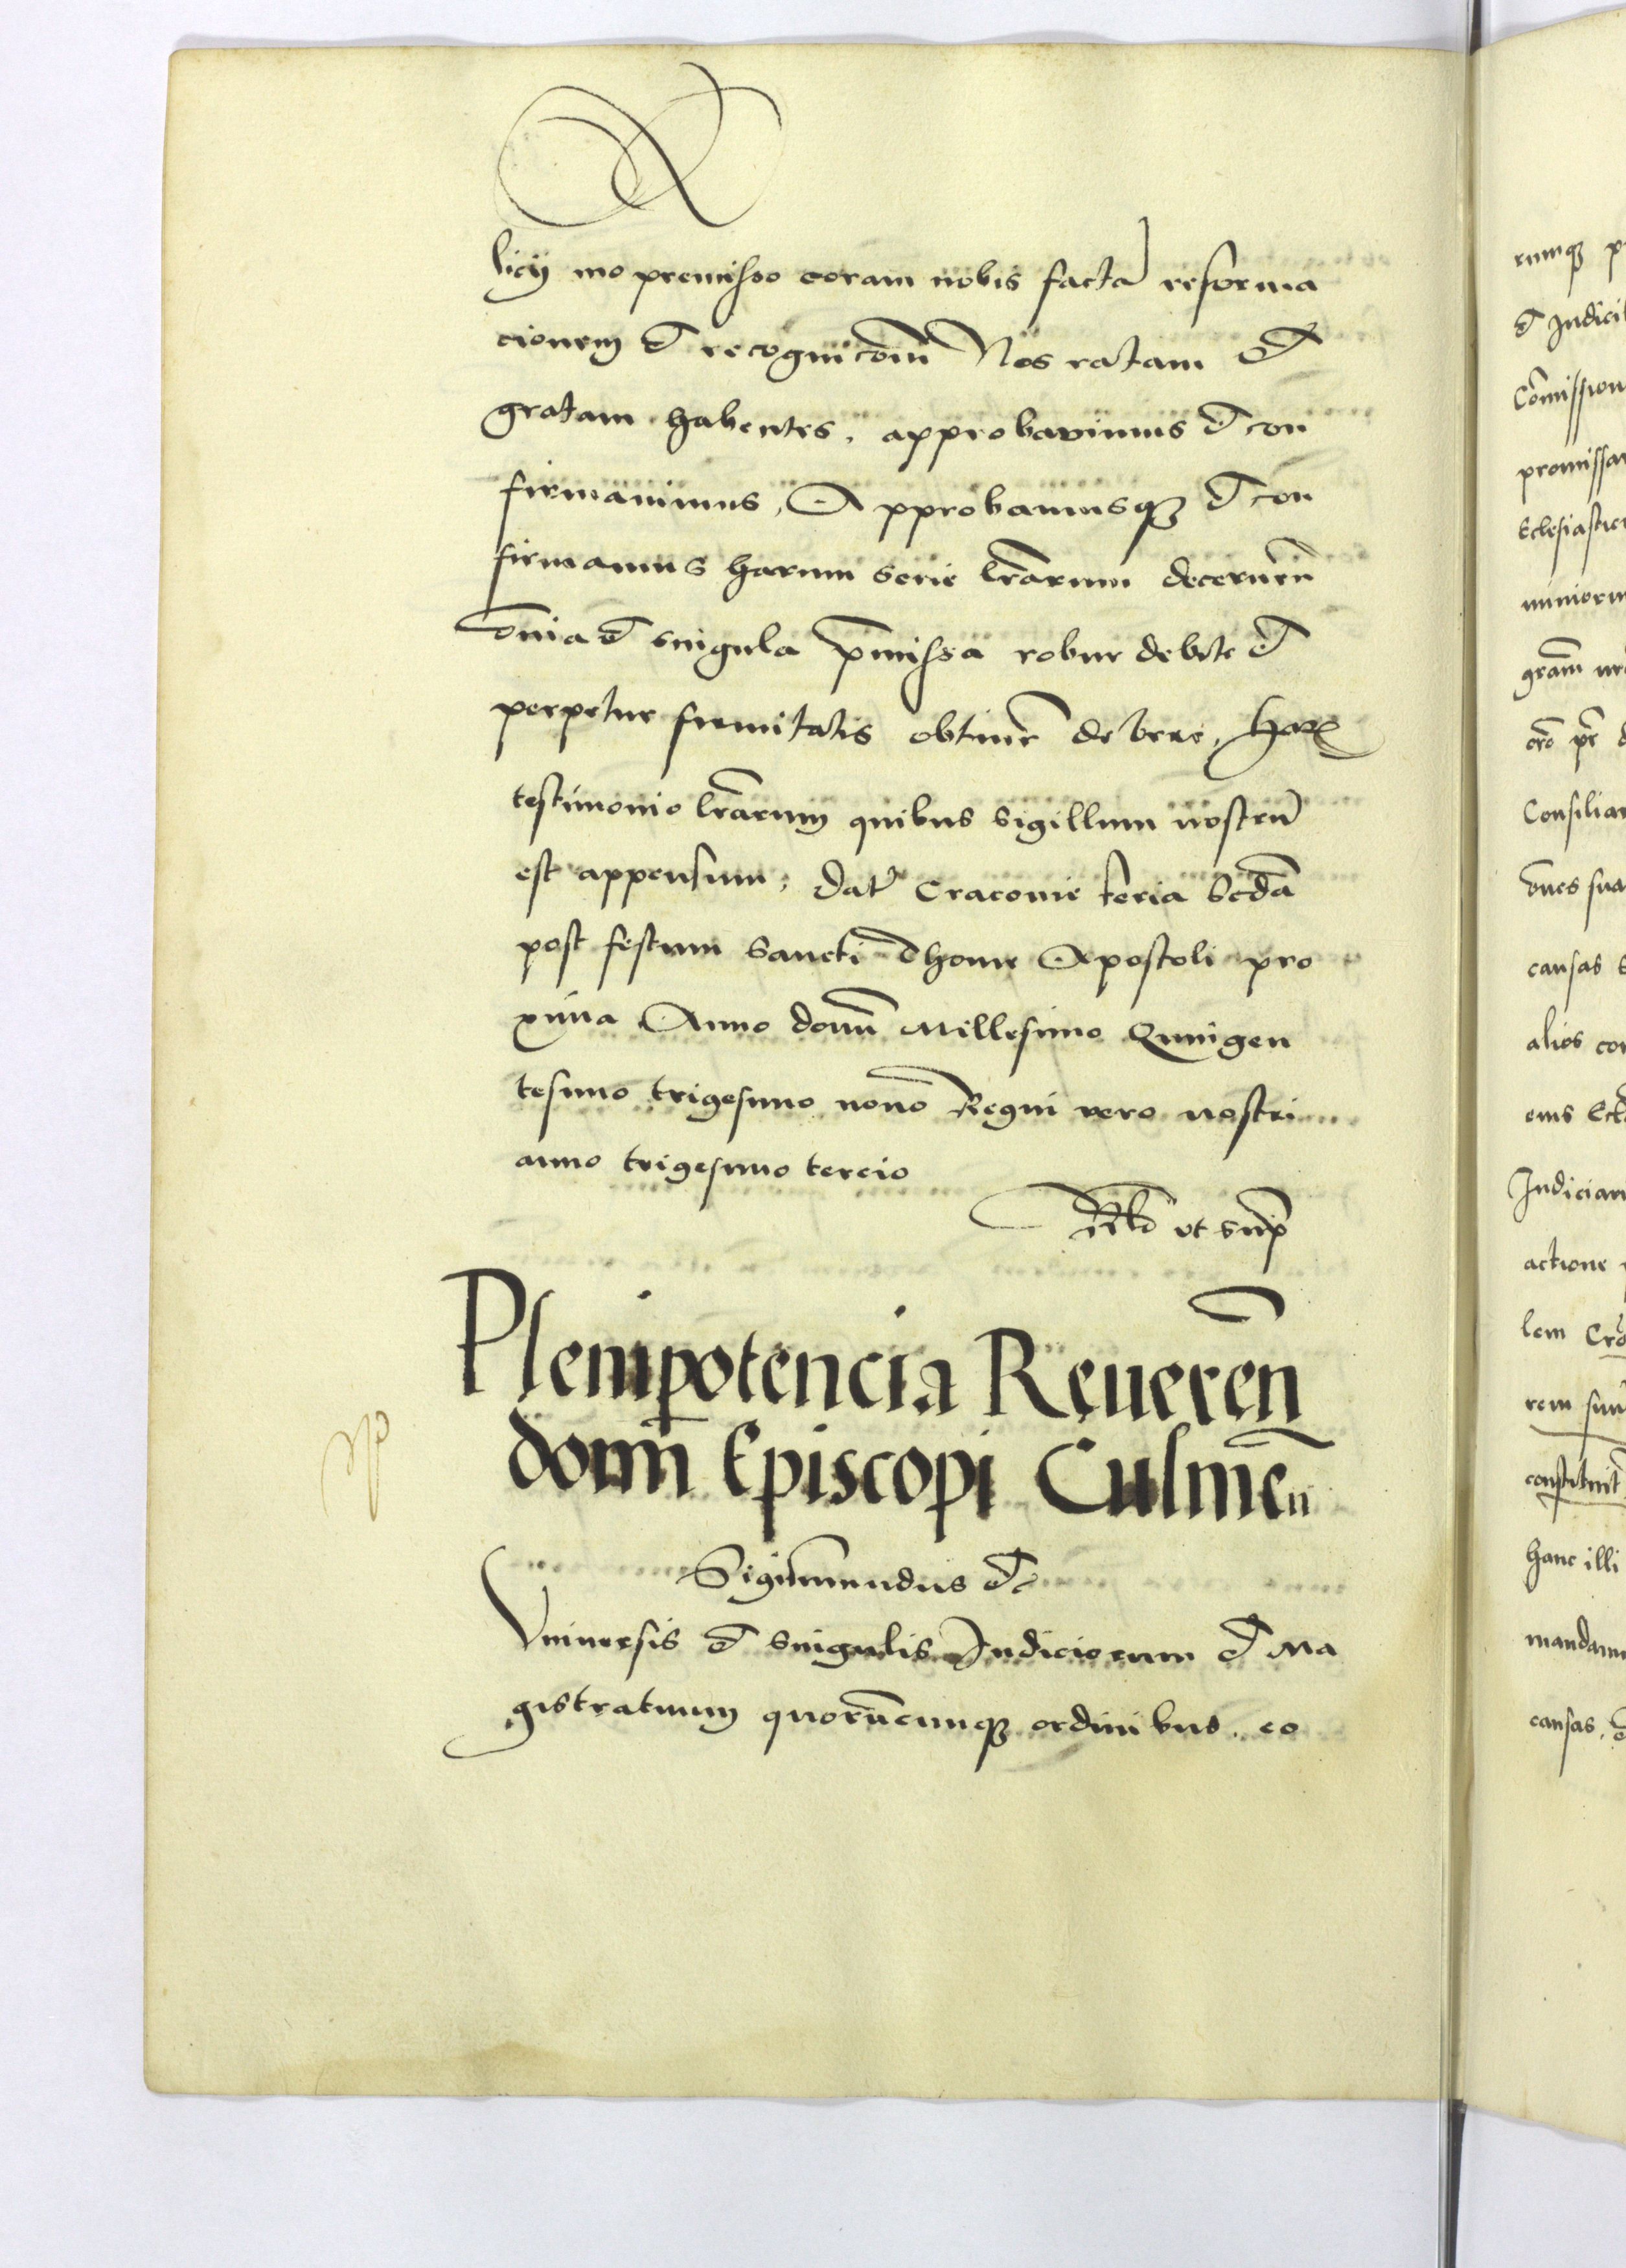 licij mo premisso coram nobis factā reforma
cionem et recognicōm Nos ratam Et
gratam habentes, approbavimus et con
firmavimus, Approbamusq3 et con
firmamus harum serie lrārum decernen̄
om̄ia et singula p̄missa robur debite et
perpetue firmitatis obtiner̄ debere, Har
testimonio lrārum quibus sigillum nostrū
est appensum, dat̄ Cracovie feria scdā
post festum sancti Thome Apostoli pro
xima Anno domī Millesimo Quingen
tesimo trigesimo nono Regni vero nostri
anno trigesimo tercio
Rlō ut sup̄
Plenipotencia Reueren̄
domī Episcopi Culmen̄
Sigismundus etc
Vniversis et singulis Judiciorum et Ma
gistratuum quorūcumq3 ordinibus, co
rumq3
et Judici
Cōmission
promissar
Eclesiastic
grām
Consiliar
causas
alios con
eius
Judiciari
actione
lem
rem
constituit
hanc illi
mandam
causas,